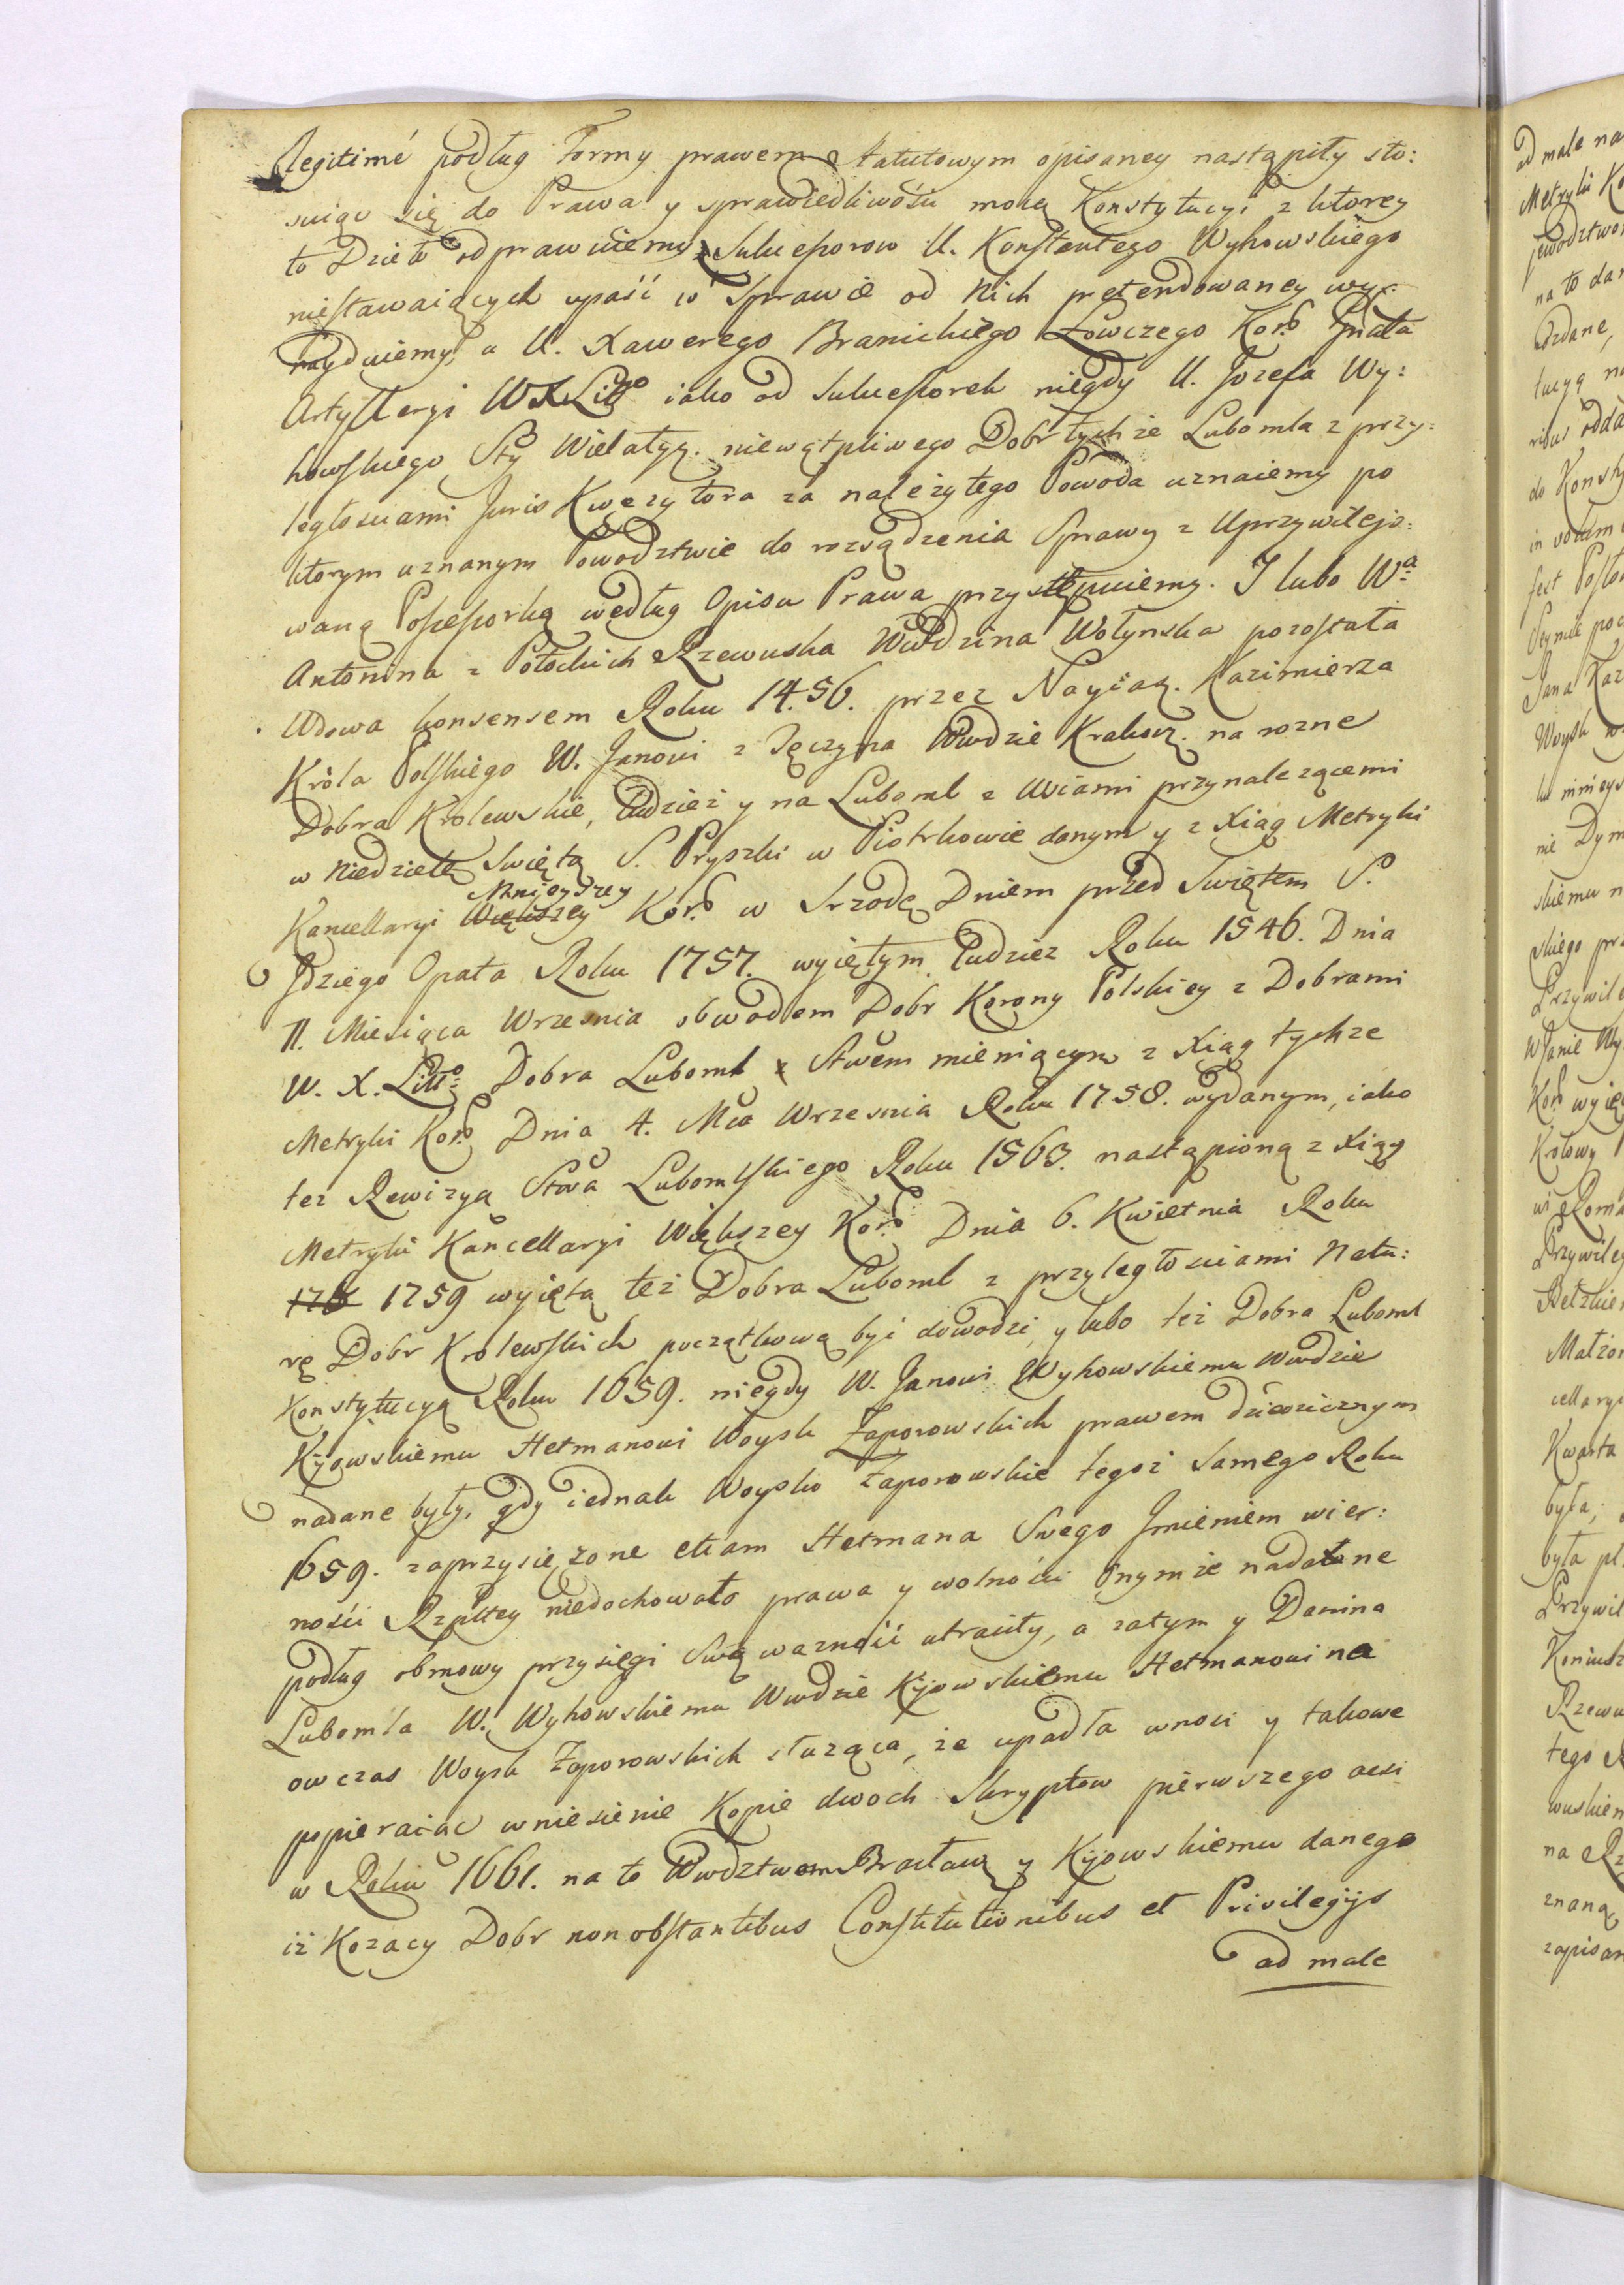 legitimé podług Formy prawem Statutowym opisaney nastąpiły sto:
suiąc się do Prawa y sprawiedliwości mocą Konstytucyi z ktorey
to Dzieło odprawuiemy Sukcessorow U. Konstantego Wyhowskiego
niestawaiących upaść w Sprawie od Nich pretendowaney wy:
naydziemy, a U. Xawerego Branickiego Łowczego Koro Gnała
Artylleryi W X Litto iako od Sukcessorek niegdy U. Jozefa Wy:
howskiego Sty Wielatyc. niewątpliwego Dobr tychże Lubomla z przy:
ległosciami Juris Kwęzytora za należytego Powoda uznaiemy po
ktorym uznanym Powodztwie do rozsądzenia Sprawy z Uprzywilejo:
waną Possessorką według Opisu Prawa przystępuiemy. I lubo Wa
Antonina z Potockich Rzewuska Wwdzina Wołynska pozostała
Wdowa konsensem Roku 1456. przez Nayiaś. Kazimierza
Króla Polskiego W. Janowi z Tęczyna Wwdzie Krakow. na rozne
Dobra Krolewskie, Tudzież y na Luboml z Wsiami przynalezącemi
w Niedzielę Swiętą S. Pryszki w Piotrkowie danym y z Xiąg Metryki
Mnieyszey
Kancellaryi Większey Koro w Srzodę Dniem przed Swiętem S.
Idziego Opata Roku 1757. wyiętym Tudzież Roku 1546. Dnia
11. Miesiąca Wrzesnia obwodem Dobr Korony Polskiey z Dobrami
W. X. Litto Dobra Luboml Stwem mieniącym z Xiąg tychze
Metryki Koro Dnia 4. Mca Wrzesnia Roku 1758. wydanym, iako
tez Rewizyą Stwa Lubomlskiego Roku 1563. nastąpioną z Xiąg
Metryki Kancellaryi Większey Koro Dnia 6. Kwietnia Roku
1759 wyiętą też Dobra Luboml z przyległosciami Natu:
rę Dobr Krolewskich początkową być dowodzi, y lubo też Dobra Luboml
Konstytucyą Roku 1659. niegdy W. Janowi Wyhowskiemu Wwdzie
Kyowskiemu Hetmanowi Woysk Zaporowskich prawem dziedzicznym
nadane były, gdy iednak Woysko Zaporowskie tegoż Samego Roku
1659. zaprzysiężone etiam Hetmana Swego Imieniem wier:
nosci Rzpltey niedochowało prawa y wolności Onymże nadane
podług obmowy przysięgi Swą wazność utraciły, a zatym y Danina
Lubomla W. Wyhowskiemu Wwdzie Kyowskiemu Hetmanowi na
ow czas Woysk Zaporowskich służąca, że upadła wnosi y takowe
popieraiąc wniesienie Kopie dwoch Skryptow pierwszego acsi
w Roku 1661. na to Wwdztwom Bracław. y Kyowskiemu danego
iż Kozacy Dobr non obstantibus Constitutionibus et Privilegijs
ad male